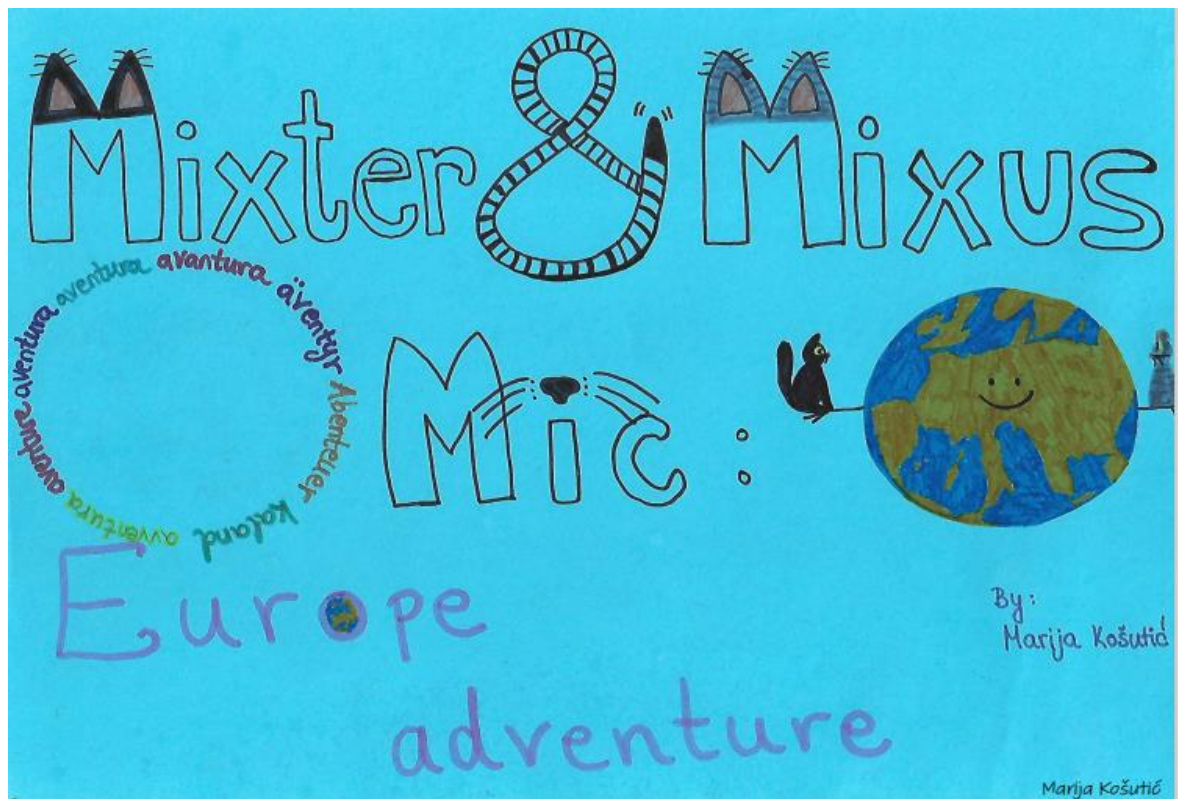 Mixter & Mixus
aventura
avantura
äventyr
Abenteuer
kaland
avventura
aventure
aventura
Mic :
Europe
adventure
By:
Marija Košutić
Marija Košutić